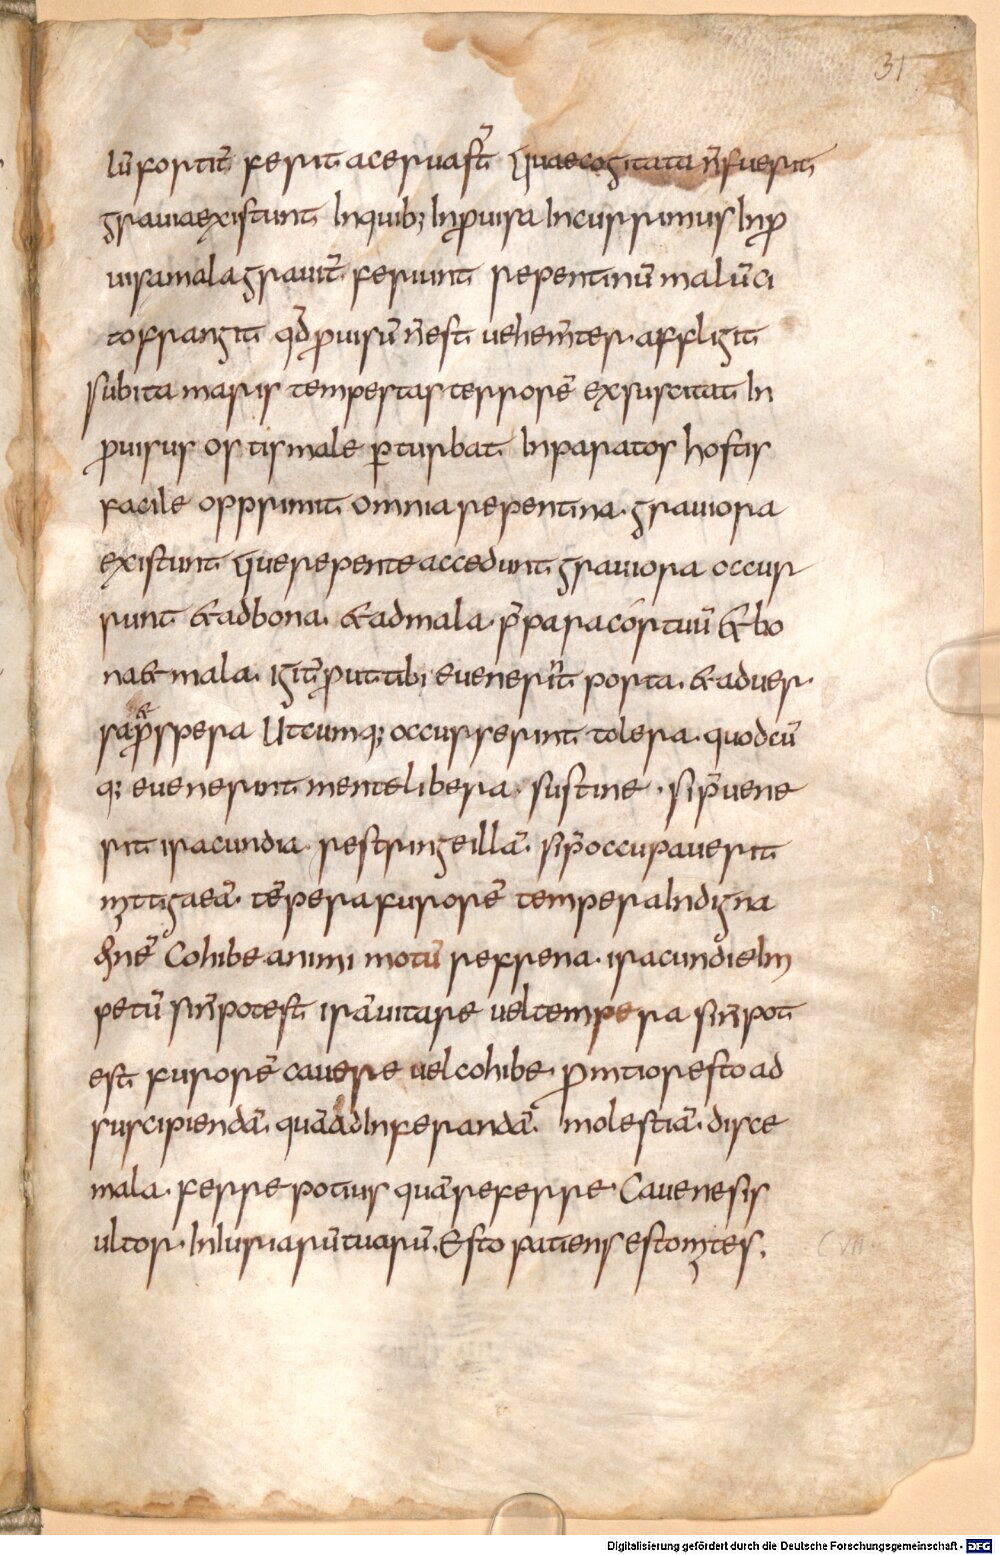 31
lū fortit̄ ferit acerua ſt̄ Quae cogitata n̄ fuerit
grauia existunt Inquib; Inꝓuisa Incurrimus Inꝓ
uisa mala grauit̄ feriunt repentinū malū ci
to frangit qđ ꝓuisū n̄ est uehem̄ter · affligit
subita maris tempestas terrorē exsuscitat In
ꝓuisus ostis male ꝑturbat Inparatos hostis
facile opprimit omnia repentina · grauiora
existunt Que repente accedunt grauiora occur
runt & ad bona · & ad mala · p̄para cor tuū & bo
na & mala · igit̄ ꝓut tibi euener̄it porta · & aduer
sa & prospera Utcumq; occurrerint tolera · quodcū
q; euenerunt mente libera · sustine · si p̄uene
rit iracundia · restringe illā · si p̄occupauerit
mitiga eā · tēpera furorē tempera Indigna
tionē Cohibe animi motū refrena · iracundie Im
petū si n̄ potest irā uitare uel tempera si n̄ pot
est furorē cauere uel cohibe · ꝓmtior esto ad
suscipiendā · quā ad Inferandā · molestiā · disce
mala · ferre potius quā referre · Caue ne sis
ultor · Iniuriarū tuarū · Esto patiens esto mites ·
CVII
Digitalisierung gefördert durch die Deutsche Forschungsgemeinschaft - DFG